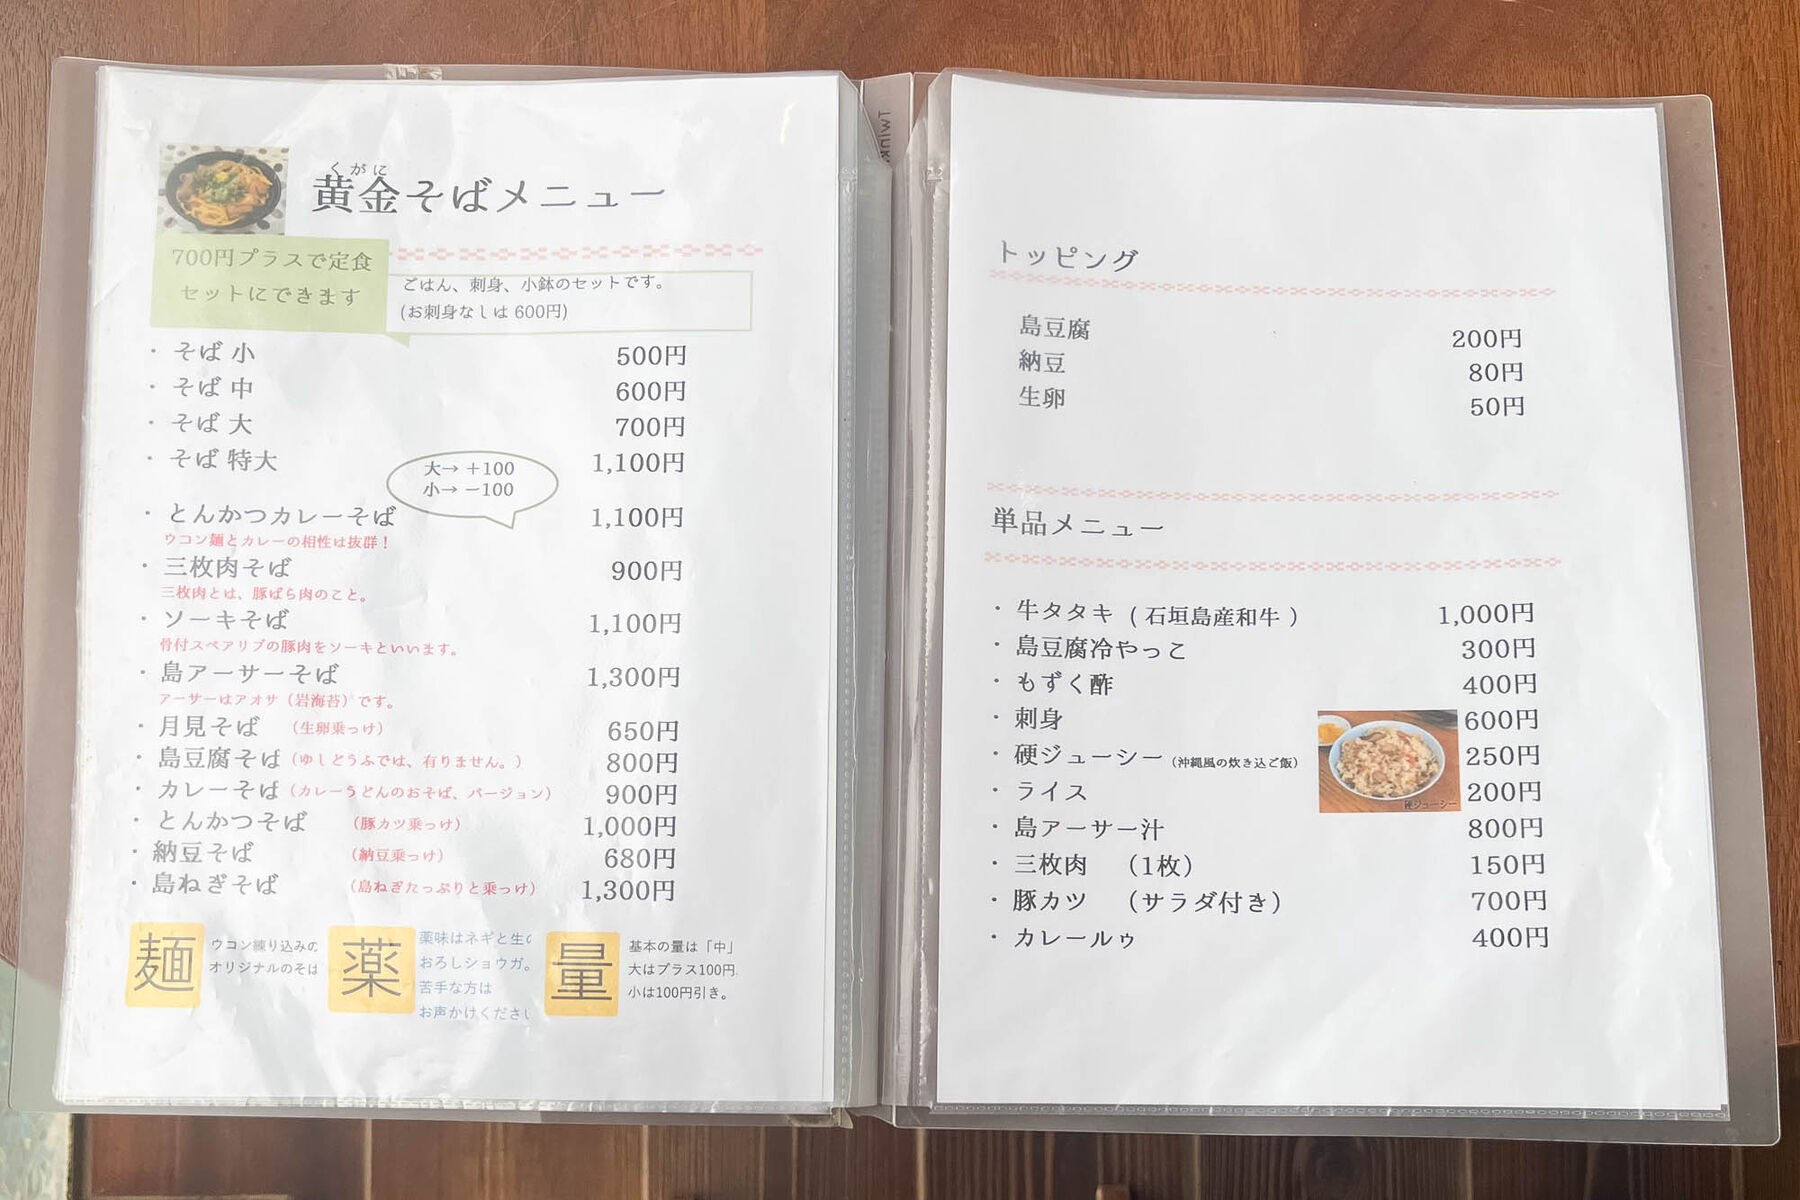 くがに
黄金そばメニュー
700円プラスで定食
セットにできます
ごはん、刺身、小鉢のセットです。
(お刺身なしは 600円)
・ そば 小 500円
・ そば 中 600円
・ そば 大 700円
・ そば 特大 1,100円
大→ +100
小→ －100
・ とんかつカレーそば 1,100円
ウコン麺とカレーの相性は抜群！
・ 三枚肉そば 900円
三枚肉とは、豚ばら肉のこと。
・ ソーキそば 1,100円
骨付スペアリブの豚肉をソーキといいます。
・ 島アーサーそば 1,300円
アーサーはアオサ（岩海苔）です。
・ 月見そば （生卵乗っけ） 650円
・ 島豆腐そば（ゆしとうふでは、有りません。） 800円
・ カレーそば（カレーうどんのおそば、バージョン） 900円
・ とんかつそば （豚カツ乗っけ） 1,000円
・ 納豆そば （納豆乗っけ） 680円
・ 島ねぎそば （島ねぎたっぷりと乗っけ） 1,300円
麺
ウコン練り込みの
オリジナルのそば
薬
薬味はネギと生の
おろしショウガ。
苦手な方は
お声かけください
量
基本の量は「中」
大はプラス100円.
小は100円引き。
トッピング
島豆腐 200円
納豆 80円
生卵 50円
単品メニュー
・ 牛タタキ ( 石垣島産和牛 ) 1,000円
・ 島豆腐冷やっこ 300円
・ もずく酢 400円
・ 刺身 600円
・ 硬ジューシー（沖縄風の炊き込ご飯） 250円
硬ジューシー
・ ライス 200円
・ 島アーサー汁 800円
・ 三枚肉 （1枚） 150円
・ 豚カツ （サラダ付き） 700円
・ カレールゥ 400円